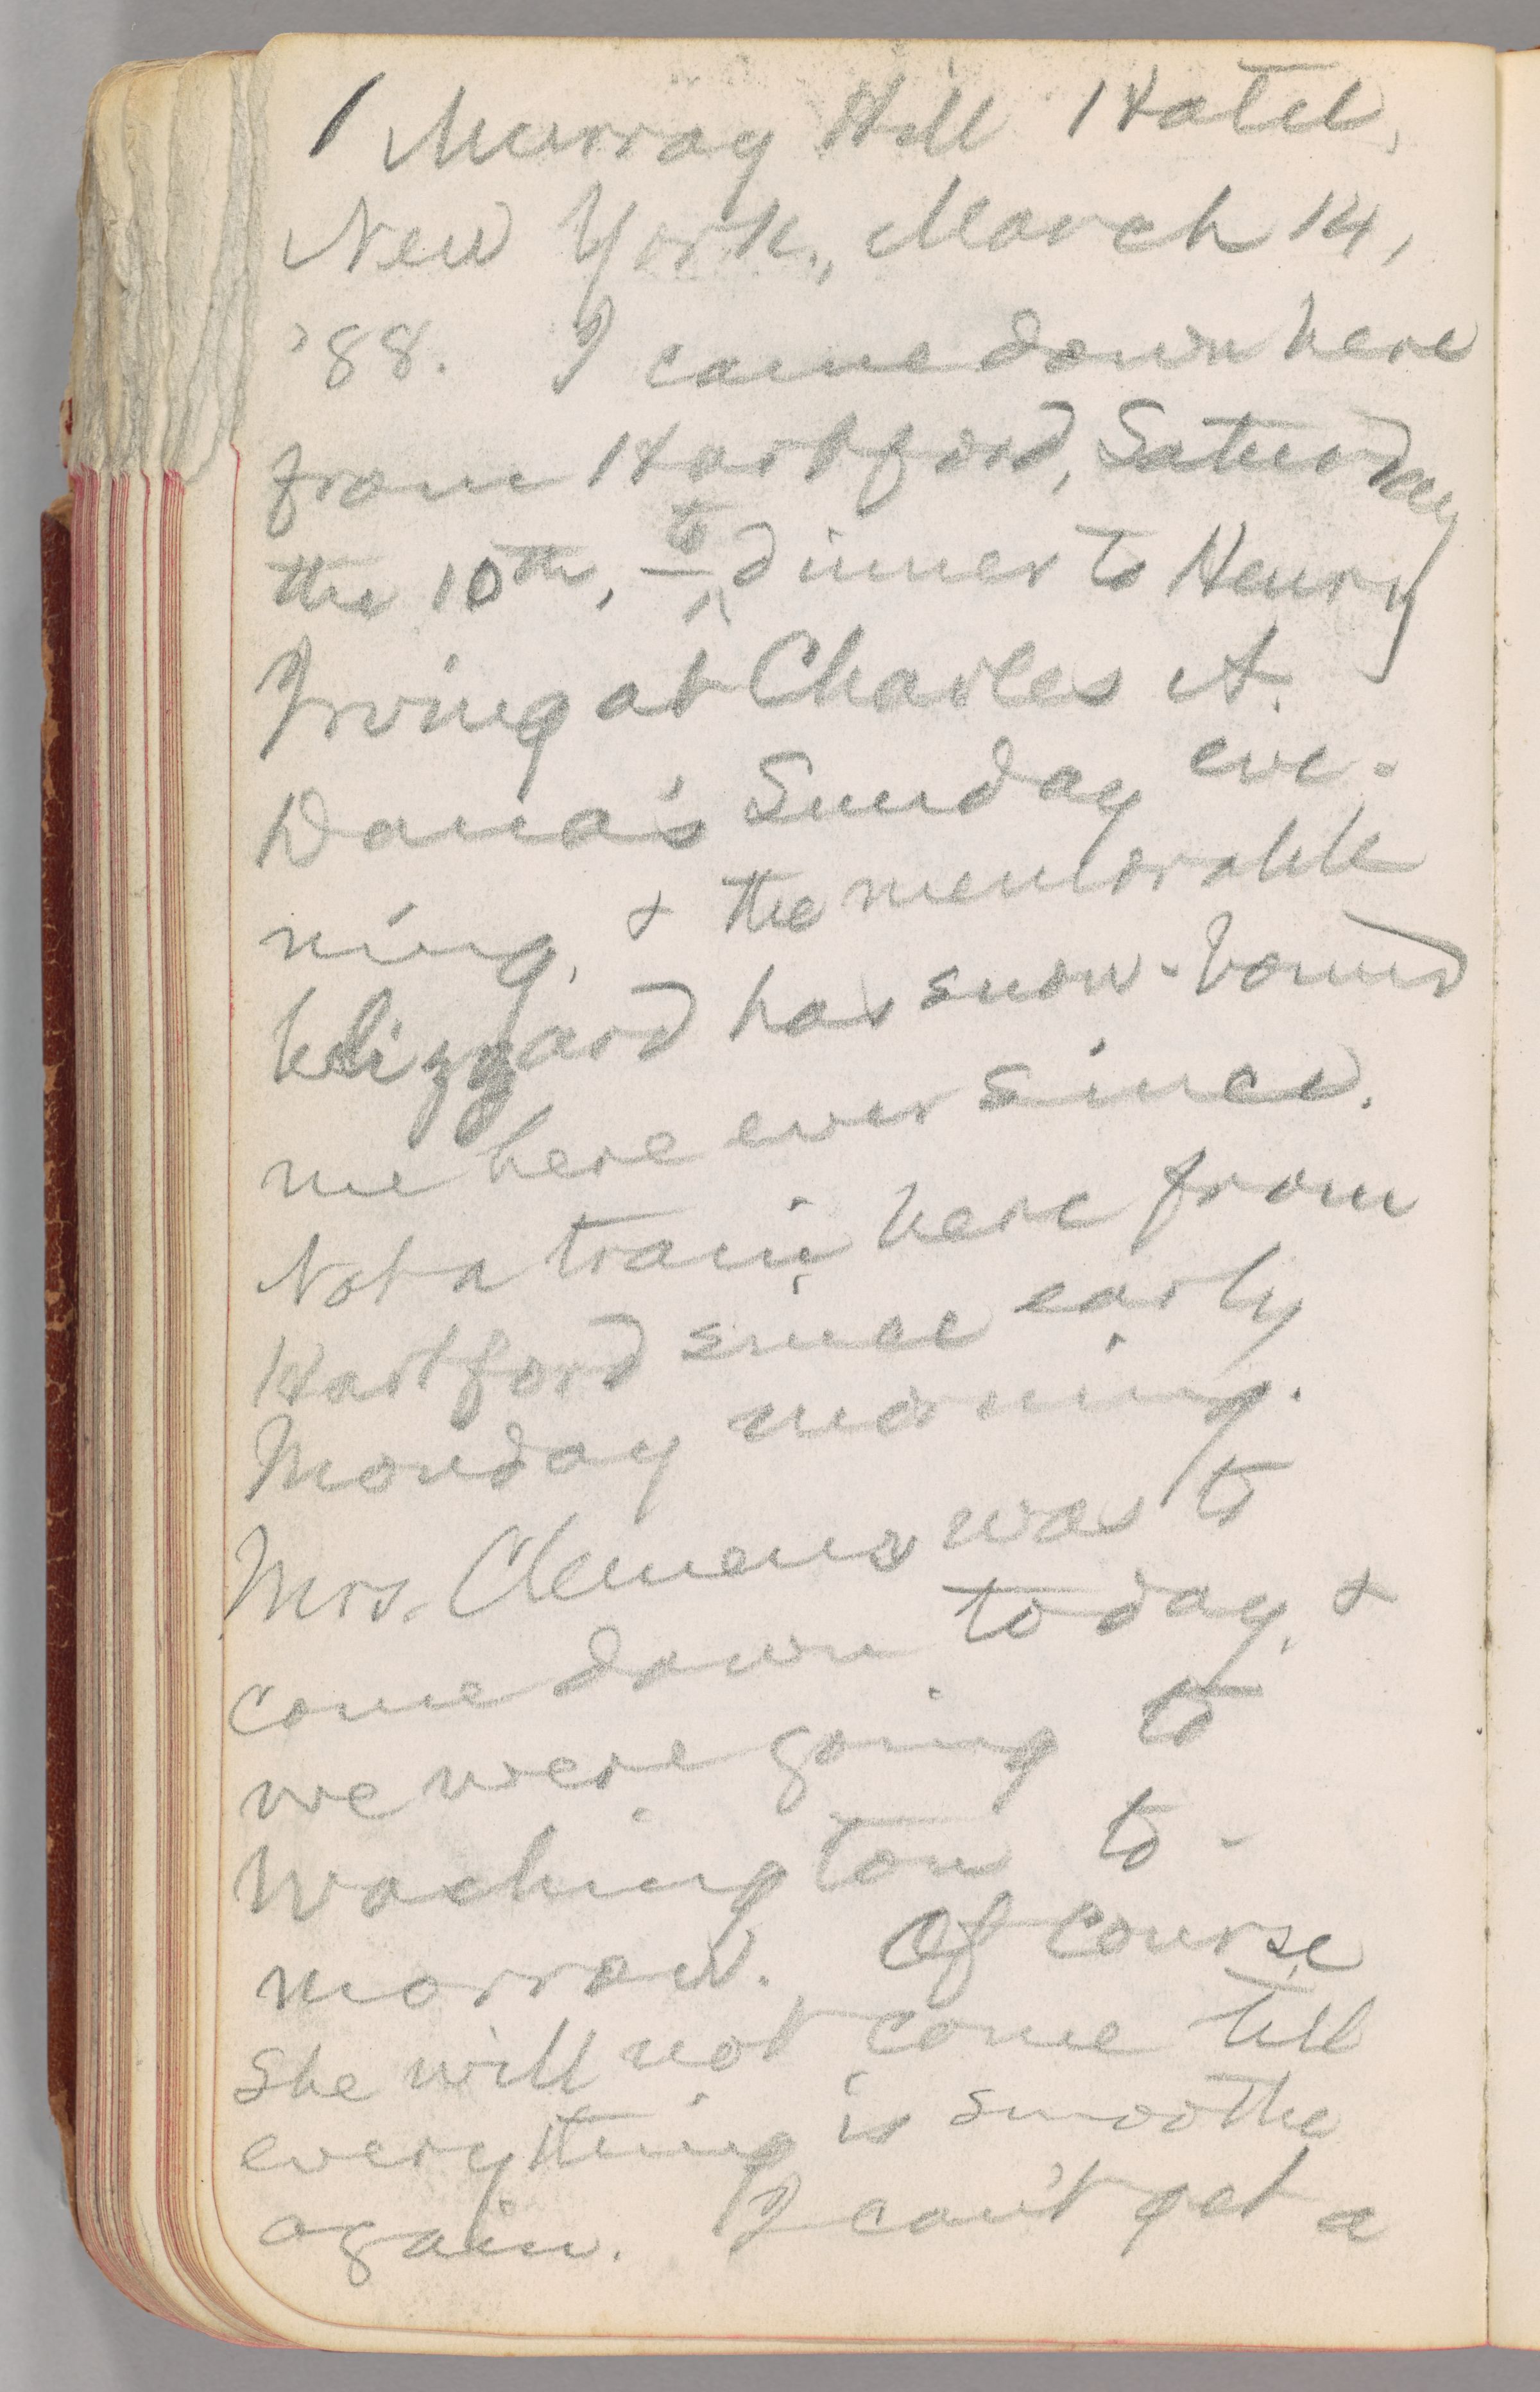 Murray Hill Hotel,
New York, March 14,
'88. I came down here
from Hartford, Saturday
the 10th, — to dinner to Henry
Irving at Charles A.
Dana's Sunday eve-
ning, & the memorable
blizzard has snow-bound
me here ever since.
Not a train here from
Hartford since early
Monday morning.
Mrs. Clemens was to
come down to day, &
we were going to
Washington to-
morrow. Of course
she will not come till
everything is smoothe
again. I can't get a